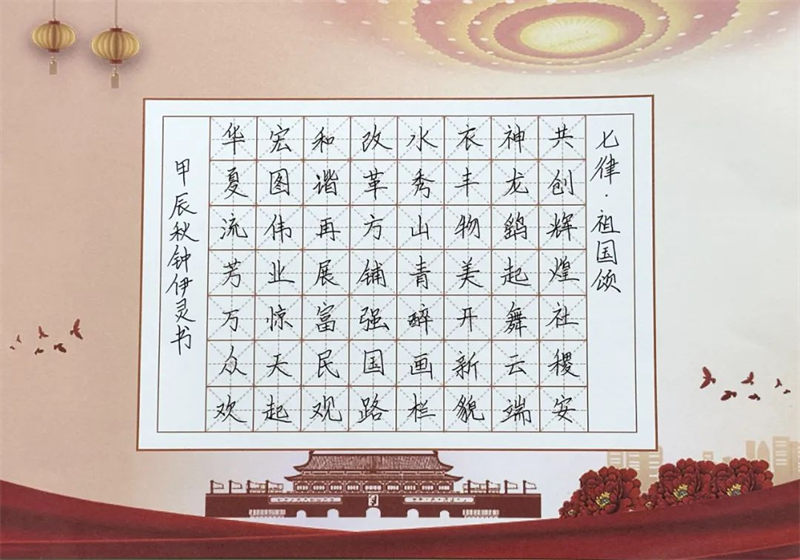 七律·祖国颂
共创辉煌社稷安
神龙鹞起舞云端
衣丰物美开新貌
水秀山青醉画栏
改革方铺强国路
和谐再展富民观
宏图伟业惊天起
华夏流芳万众欢
甲辰秋钟伊灵书